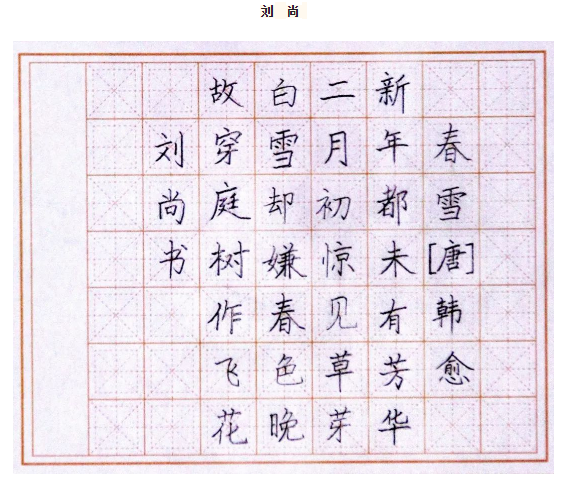 刘 尚
春雪[唐]韩愈
新年都未有芳华
二月初惊见草芽
白雪却嫌春色晚
故穿庭树作飞花
刘尚书